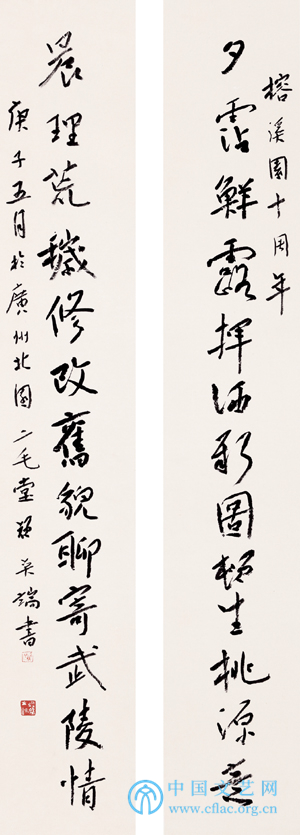 榕溪園十周年
夕霑鮮露揮洒新圖頓生桃源意
晨理荒穢修改舊貌聊寄武陵情
庚子五月於廣州北園二毛堂
吴端書
中国文艺网
www.cflac.org.cn